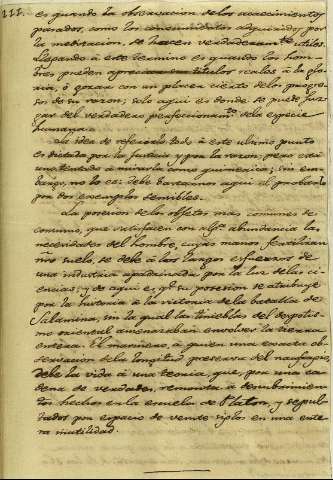 111.
es quando la observacion de los acaecimientos
pasados, como los conocimientos adquiridos por
la meditacion, se hacen verdaderam.te utiles.
Llegando à este termino es quando los hom-
bres pueden apreciar sus titulos reales à la glo-
ria, ò gozar con un placer cierto de los progre-
sos de su razon; solo aqui es donde se puede juz-
gar del verdadero perfeccionam.to de la especie
humana.
La idea de referirlo todo à este ultimo punto
es dictada por la justicia y por la razon; pero creí
una tentado à mirarla como quimerica; sin em-
bargo, no lo es: debe bastarnos aqui el probarlo
por dos exemplos sensibles.
La posesion de los objetos mas comunes de
consumo, que satisfacen con alg.a abundancia las
necesidades del hombre, cuyas manos fertilizan
nro suelo, se debe à los largos esfuerzos de
una industria apadrinada por la luz de las ci-
encias; y de aqui es, q.e su posesion se atribuye
por la historia à la victoria de la batalla de
Salamina, sin la qual las tinieblas del despotis-
mo oriental amenazaban envolver la tierra
entera. El marinero, à quien una exacta ob-
servacion de la longitud preserva del naufragio
debe la vida à una teoria, que, por una ca-
dena de verdades, remonta à descubrimien-
tos hechos en la escuela de Platon, y sepul-
tados por espacio de veinte siglos en una ente-
ra inutilidad.